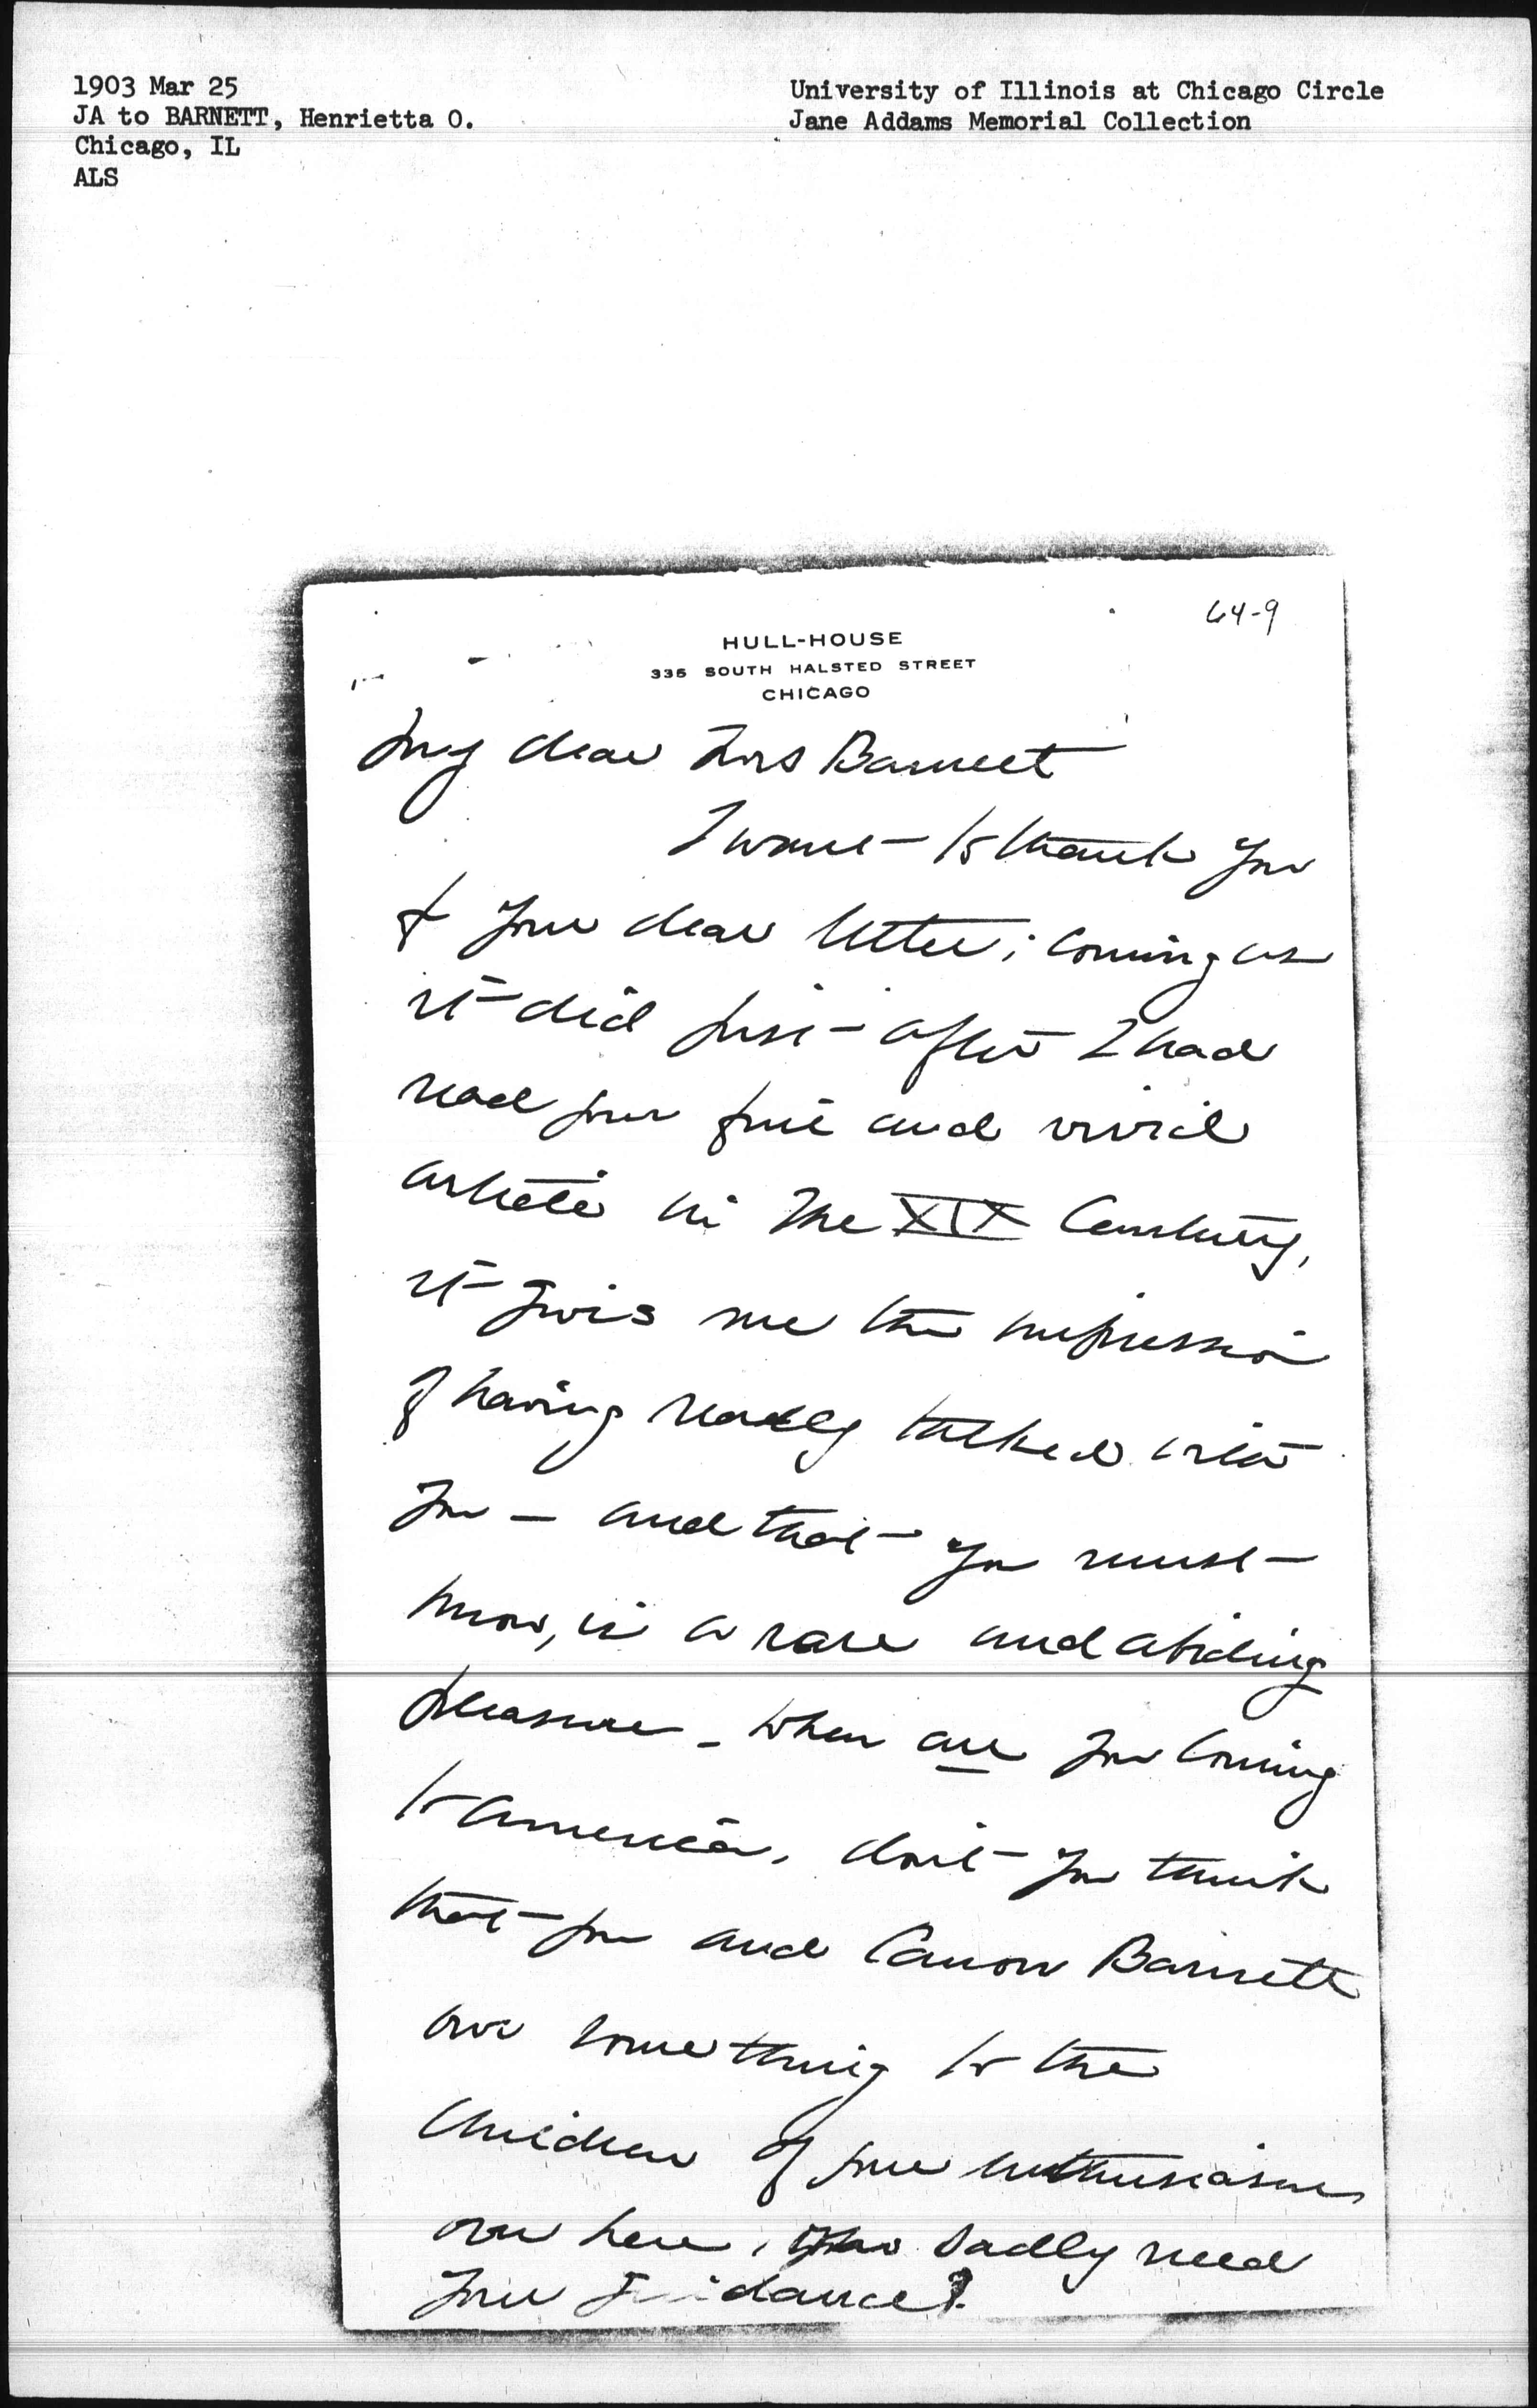 1903 Mar 25
JA to BARNETT, Henrietta O.
Chicago, IL
ALS
University of Illinois at Chicago Circle
Jane Addams Memorial Collection
64-9
HULL-HOUSE
335 SOUTH HALSTED STREET
CHICAGO
My dear Mrs Barnett
I want to thank you
for your dear letter; coming as
it did just after I had
read your fine and vivid
article in The XIX Century,
it gives me the impression
of having really talked with
you — and that you must
know, is a rare and abiding
pleasure - When are you coming
to America, don't you think
that you and Canon Barnett
owe something to the
children of your enthusiasm
over here, who sadly need
your guidance?